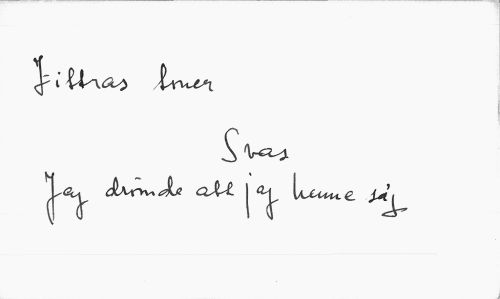 Zittras toner
Svar
Jag drömde att jag henne såg